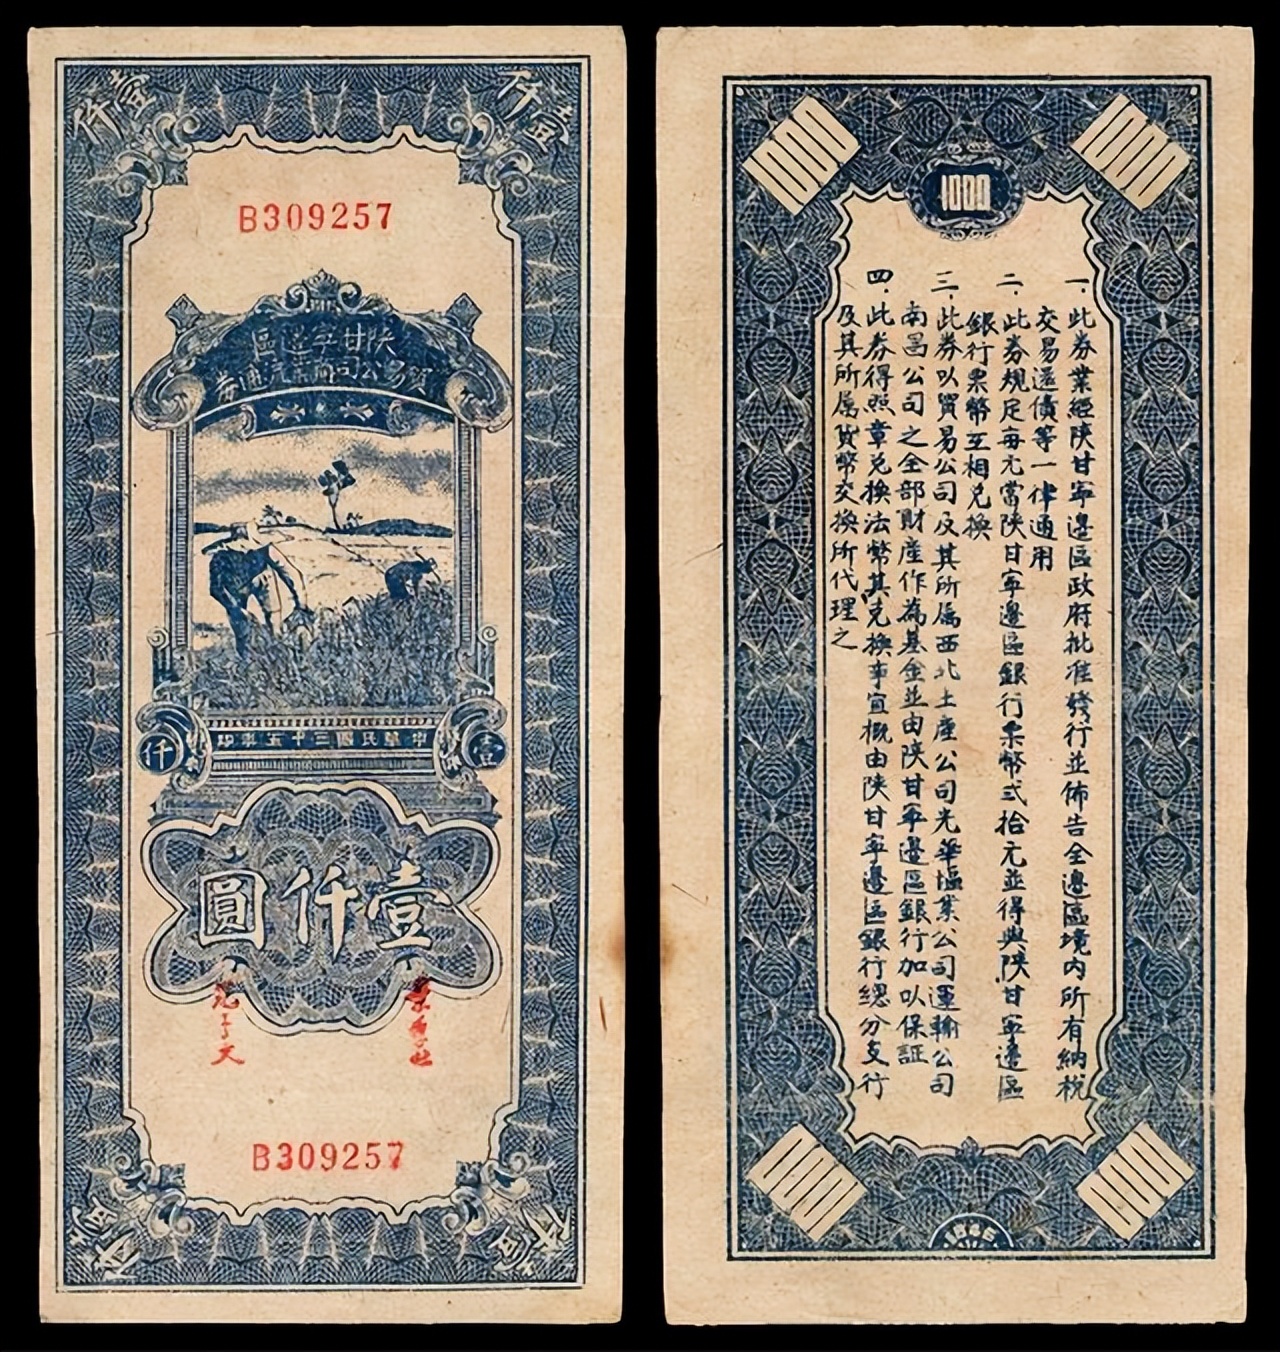 壹仟
壹仟
B309257
陝甘寧邊區
貿易公司商業流通券
中華民國三十五年印
壹
仟
壹仟圓
B309257
1000
1000
1000
一、此券業經陝甘寧邊區政府批准發行並佈告全邊區境內所有納稅
交易還債等一律通用
二、此券規定每元當陝甘寧邊區銀行票幣弍拾元並得與陝甘寧邊區
銀行票幣互相兌換
三、此券以貿易公司及其所屬西北土產公司光華塩業公司運輸公司
南昌公司之全部財產作為基金並由陝甘寧邊區銀行加以保証
四、此券得照章兌換法幣其兌換事宜概由陝甘寧邊區銀行總分支行
及其所屬貨幣交換所代理之
1000
1000
1946